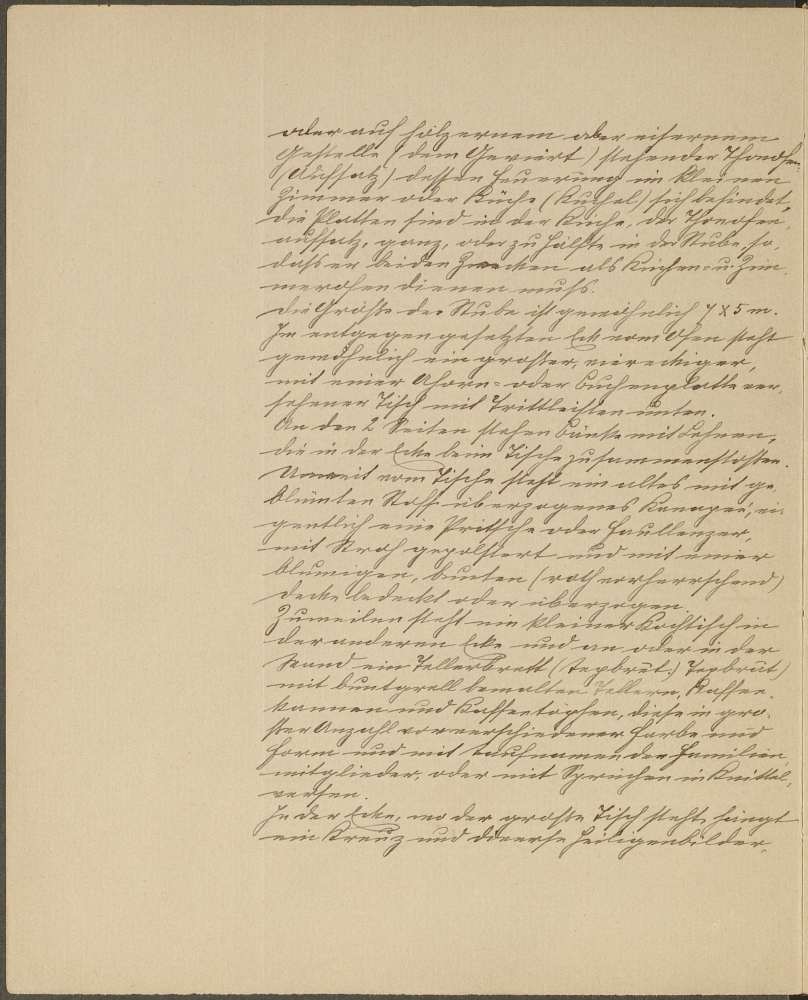 oder auf hölzernem oder eisernem
Gestelle (dem Geviert) stehender Thonofen-
(Aufsatz) dessen Feuerung im kleinen
Zimmer oder Küche (Kuchel) sich befindet,
die Platten sind in der Küche, der Thonofen-
aufsatz, ganz, oder zu Hälfte in der Stube, so,
dass er beiden Zwecken als Küchen- u. Zim-
merofen dienen muss.
Die Größe der Stube ist gewöhnlich 7 x 5 m.
Im entgegengesetzten Eck vom Ofen steht
gewöhnlich ein großer, viereckiger,
mit einer Ahorn- oder Buchenplatte ver-
sehener Tisch mit Trittleisten unten.
An den 2 Seiten stehen Bänke mit Lehnen,
die in der Ecke beim Tische zusammenstoßen.
Unweit vom Tische steht ein altes mit ge-
blümten Stoff überzogenes Kanapee, ei-
gentlich eine Pritsche oder Faullenzer,
mit Stroh gepolstert und mit einer
blumigen, bunten (roth vorherrschend)
Decke bedeckt oder überzogen.
Zuweilen steht ein kleiner Kochtisch in
der anderen Ecke und an oder in der
Wand ein Tellerbrett (Tepbrët) Topbrüt)
mit buntgrell bemalten Tellern, Kaffee-
kannen und Kaffeetöpfen, diese in gro-
ßer Anzahl vor verschiedener Farbe und
Form und mit Taufnamen der Familien-
mitglieder, oder mit Sprüchen in Knittel-
versen.
In der Ecke, wo der große Tisch steht, hängt
ein Kreuz und diverse Heiligenbilder,